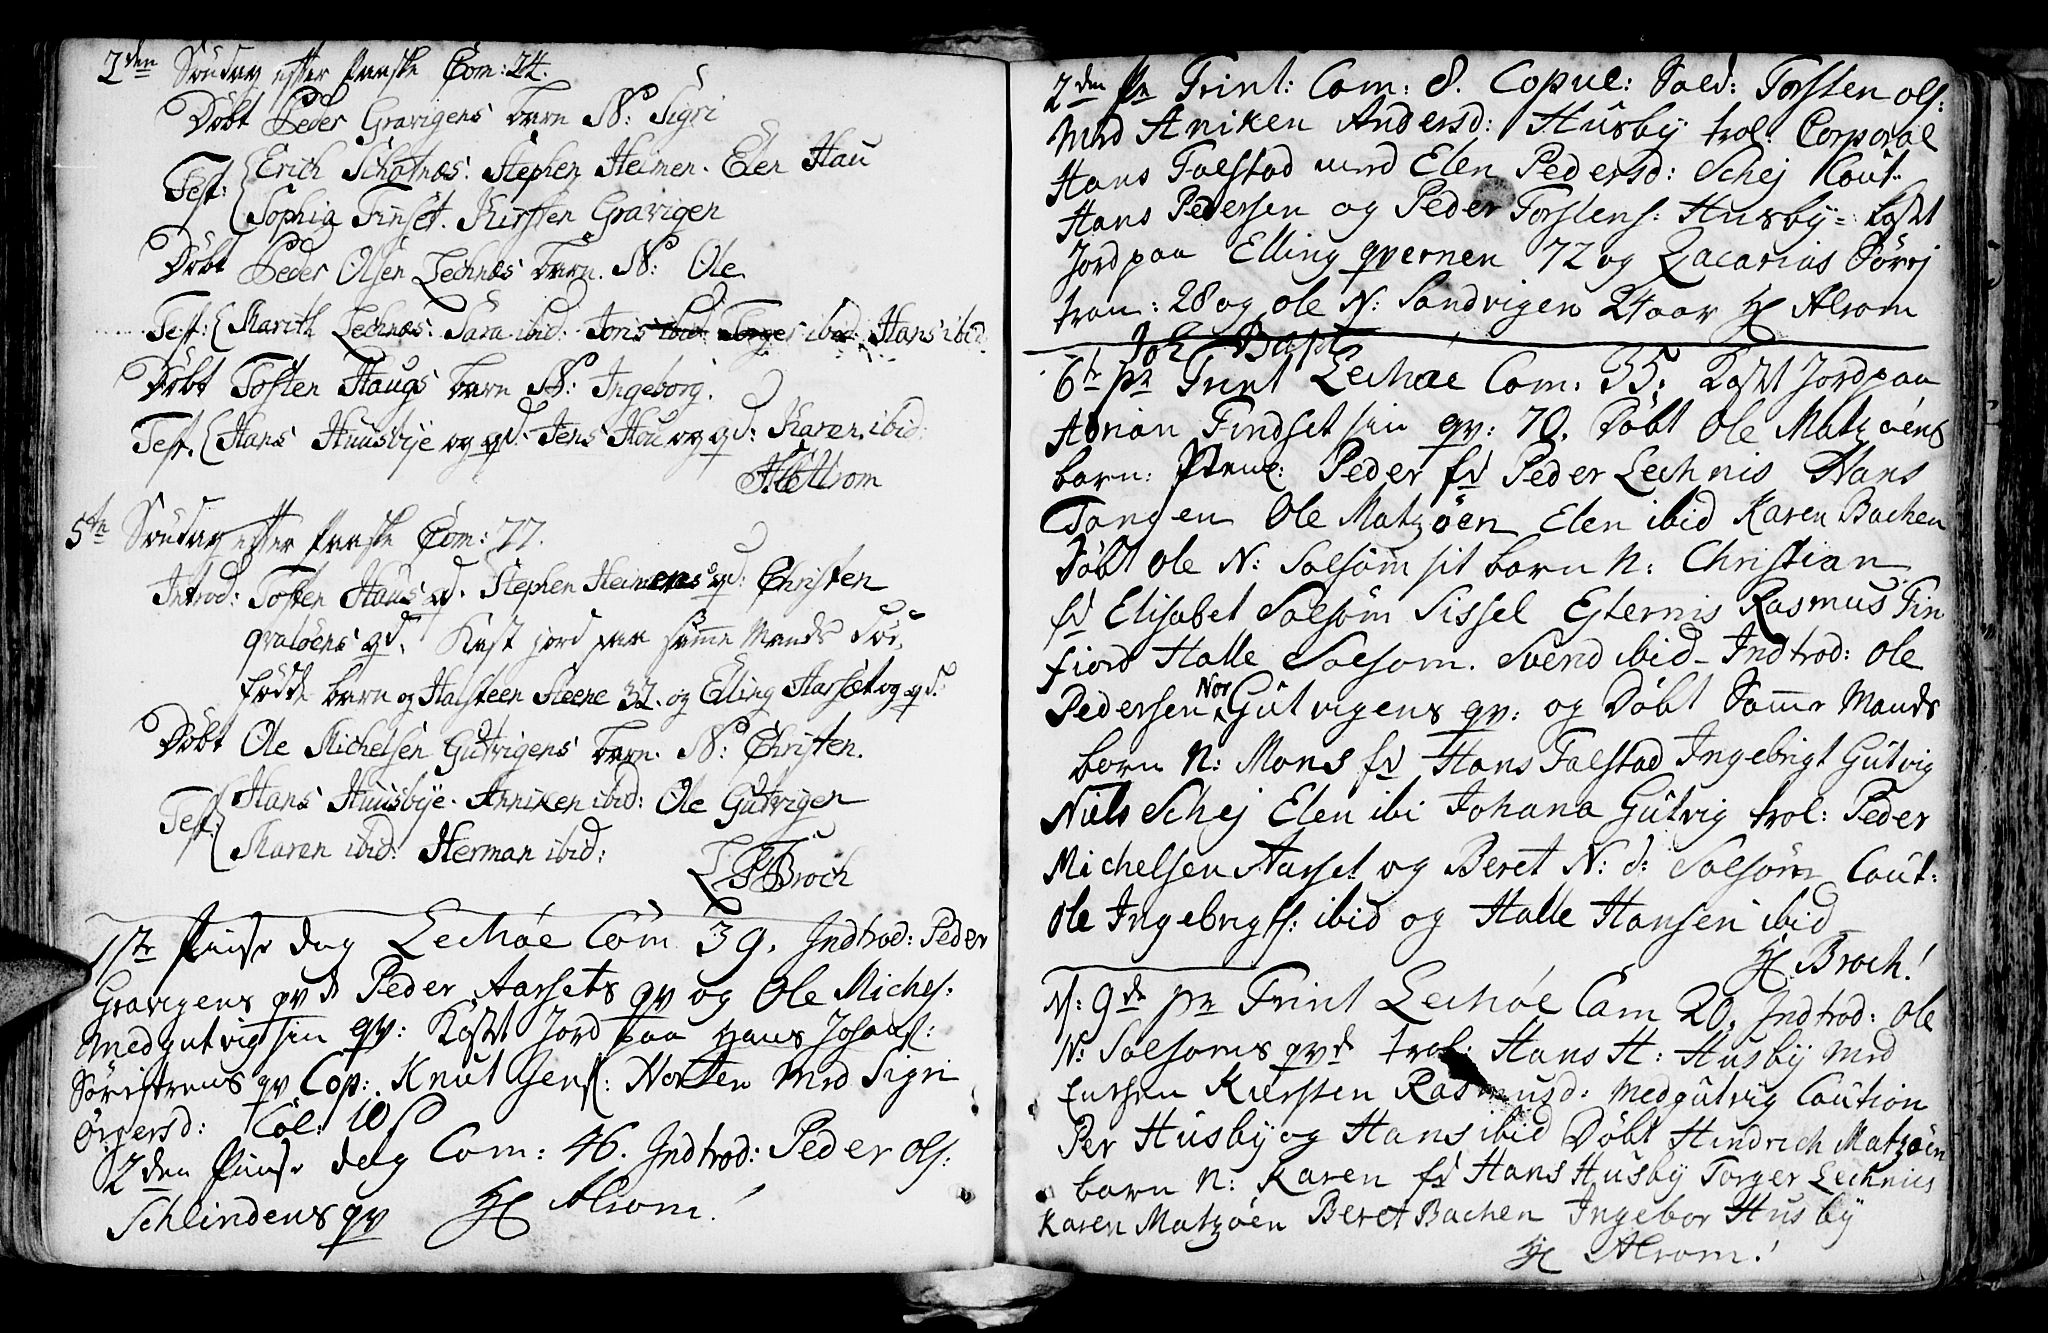 2den Søndag efter Paaske Com: 24.
Døbt Peder Gravigens barn N: Sigri
Test: Erich Schotnæs. Stephen Heimen. Elen Hau
Sophia Finset. Kirsten Gravigen
Døbt Peder Olsen Lechnæs barn. N: Ole
Test: Marith Lechnæs. Sara ibid. Joris ibid Torger ibid. Hans ibid.
Døbt Tosten Haugs barn N: Ingeborg.
Test. Hans Huusbye og qd. Jens Hou og qd: Karen ibid:
H Alrom
5te Søndag efter Paaske Com: 77.
Introd: Tosten Haus qd. Stephen Heimens qd: Christen
qvaløens qd. Kast jord paa samme Mands Død
fødde barn og Halsteen Steene 32. og Elling Harset og qd.
Døbt Ole Michelsen Gutvigens barn. N: Christen.
Test: Hans Huusbye. Anniken ibid: Ole Gutvigen
Maren ibid: Herman ibid:
Broch
1ste Pinse dag Lechøe Com 39. Indtrod: Peder
Gravigens qvd Peder Aarsets qv og Ole Michels:
Medgutvig sin qv: Kastt Jord paa Hans Johans:
qv Cop: Knut Jens: Horten med Sigri
Col: 10
2den Pinse dag Com: 46. Indtrod: Peder Ols:
Schlindens qv H Alrom!
2den pr Trint: Com: 8. Copul: Sold: Torsten Ols:
med Aniken Andersd: Husby trol: Corporal
Hans Falstad med Elen Pedersd: Schej Caut:
Hans Pedersen og Peder Torstens: Husby: kastt
Jord paa Elling qvernen 72 og Zacarias Sørej
tran: 28 og Ole N: Sandvigen 24 aar H Alrom
Joh Bapt
6te pr Trint Lechøe Com: 35. Kastt Jord paa
Adrian Findset sin qv: 70. Døbt Ole Matzøens
barn: Peder fd Peder Lechnis Hans
Tangen Ole Matzøen Elen ibid Karen Bachen
Døbt Ole N: Solsøm sit barn N: Christian
fd Elisabet Solsøm Sissel Esternis Rasmus Fin
fiord Halle Solsom. Svend ibid - Indtrod: Ole
Pedersen Nor Gutvigens qv: og Døbt Samme Mands
born N: Mons fd Hans Falstad Ingebrigt Gutvig
Niels Schej Elen ibi Johana Gutvig trol: Peder
Michelsen Aarset og Beret N: d: Solsøm Caut:
Ole Ingebrigts: ibid og Halle Hansen ibid
H Broch!
N: 9de pr Trint Lechøe Com 20. Indtrod: Ole
N: Solsoms qvd trol: Hans H: Husby med
Kiersten Rasmusd: Medgutvig Caution
Per Husby og Hans ibid Døbt Hindrich Matzøen
barn N: Karen fd Hans Husby Torger Lechnies
Karen Matzøen Beret Bachen Ingebor Husby
H Alrom!